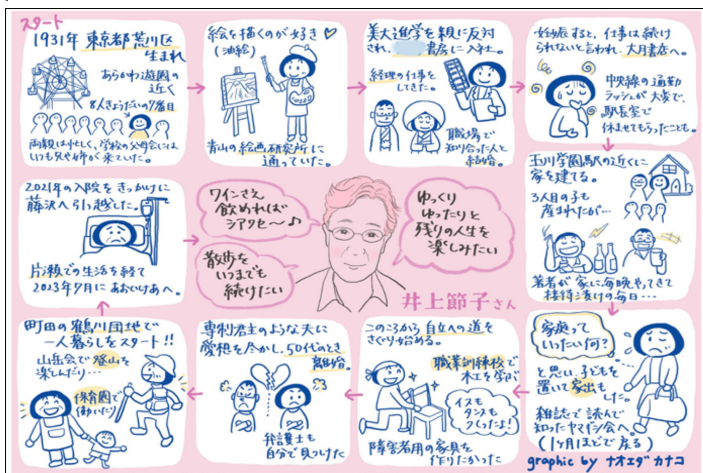 スタート
1931年 東京都荒川区
生まれ
あらかわ遊園の
近く
8人きょうだいの7番目
両親は忙しく、学校の父母会には
いつも兄や姉が来ていた。
絵を描くのが好き
(油絵)
青山の絵画研究所に
通っていた。
美大進学を親に反対
され、書房に入社。
経理の仕事を
してきた。
職場で
知り合った人と
結婚。
妊娠すると、仕事は続け
られないと言われ、大月書店へ。
中央線の通勤
ラッシュが大変で、
駅長室で
休ませてもらったことも。
玉川学園駅の近くに
家を建てる。
3人目の子も
産まれたが…
著者が家に毎晩やってきて
接待漬けの毎日…
家庭って
いったい何?
と思い、子どもを
置いて家出
もした。
雑誌で読んで
知ったヤマギシ会へ
(1ヶ月ほどで戻る)
このころから自立への道を
さぐり始める。
職業訓練校で
木工を学ぶ
イスも
タンスも
つくったよ!
障害者用の家具を
作りたかった
専制君主のような夫に
愛想を尽かし、50代のとき
離婚。
弁護士も
自分で見つけた
町田の鶴川団地で
一人暮らしをスタート!!
山岳会で登山を
楽しんだり…
保育園で
働いたり
2021年の入院をきっかけに
藤沢へ引っ越した。
片瀬での生活を経て
2023年9月にあおいけあへ。
ワインさえ
飲めれば
シアワセ〜♪
散歩を
いつまでも
続けたい
ゆっくり
ゆったりと
残りの人生を
楽しみたい
井上節子さん
graphic by ナオエダカナコ